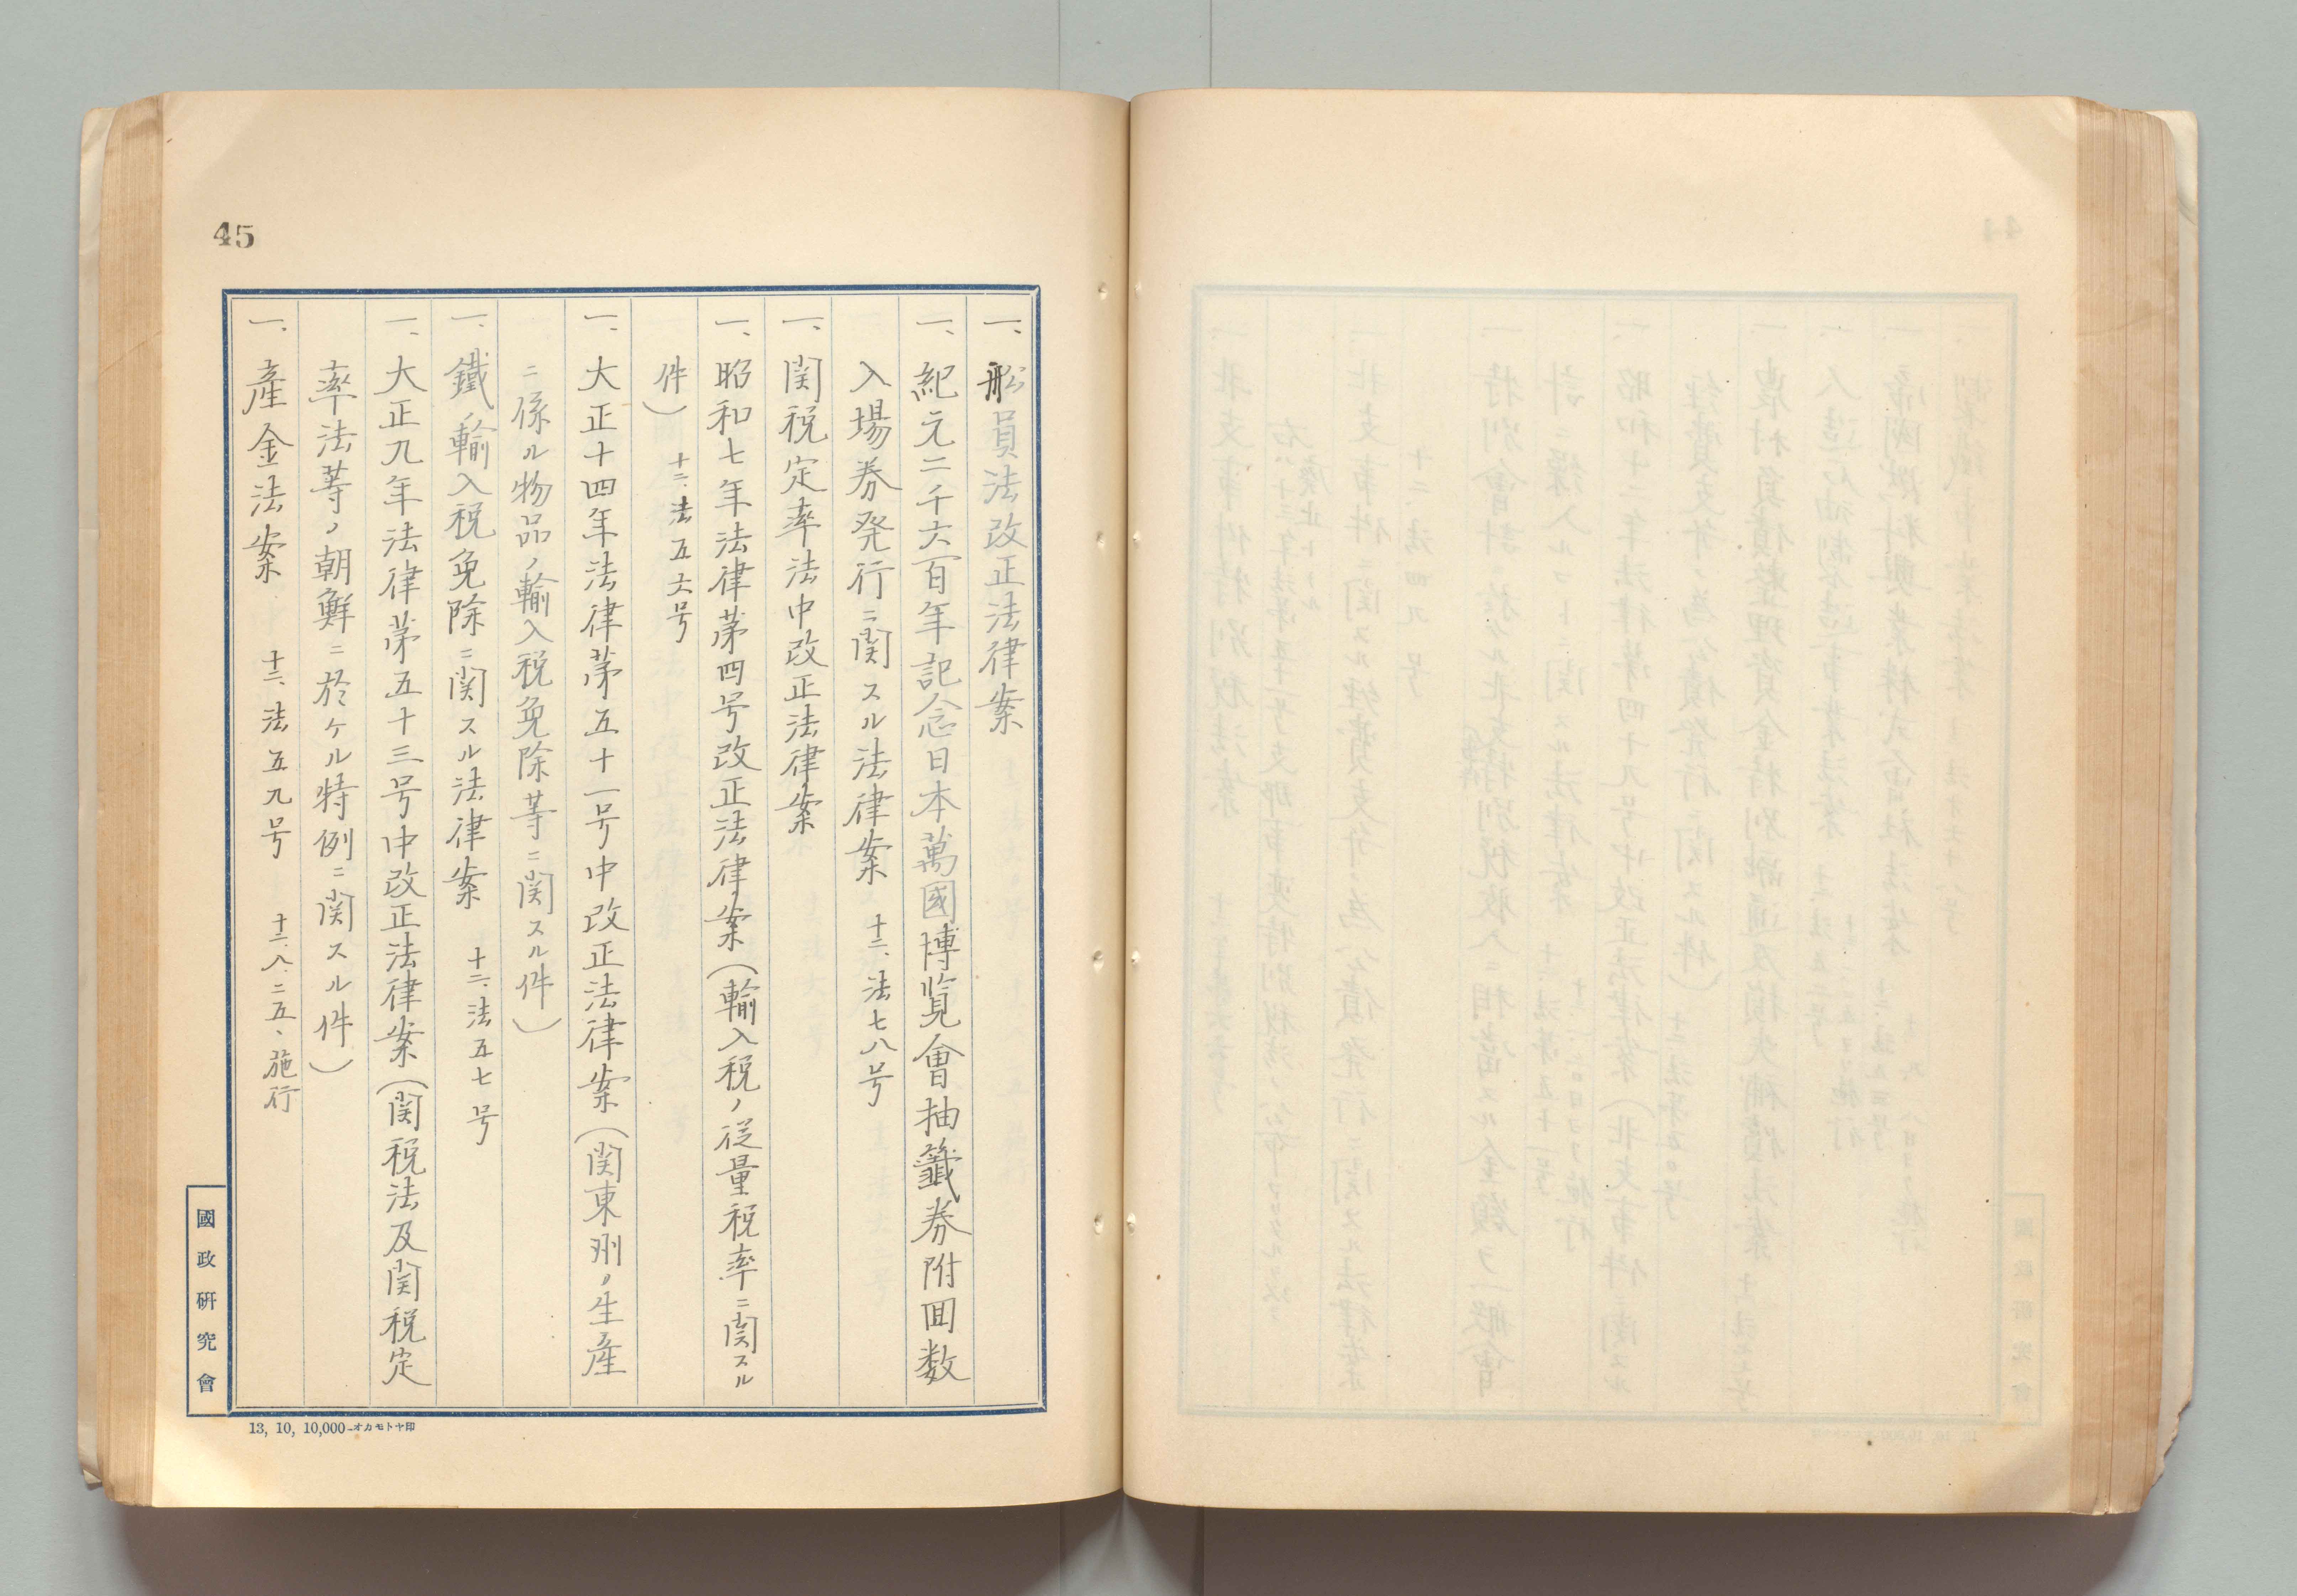 45
一、船員法改正法律案
一、紀元二千六百年記念日本萬國博覧會抽籤券附回数
入場券発行ニ関スル法律案 十二、法七八号
一、関税定率法中改正法律案
一、昭和七年法律第四号改正法律案（輸入税ノ従量税率ニ関スル
件） 十二、法五六号
一、大正十四年法律第五十一号中改正法律案（関東州ノ生産
ニ係ル物品ノ輸入税免除等ニ関スル件）
一、鐵ノ輸入税免除ニ関スル法律案 十二、法五七号
一、大正九年法律第五十三号中改正法律案（関税法及関税定
率法等ノ朝鮮ニ於ケル特例ニ関スル件）
一、産金法案 十二、法五九号 十二、八、二五、施行
國政研究會
13, 10, 10,000—オカモトヤ印